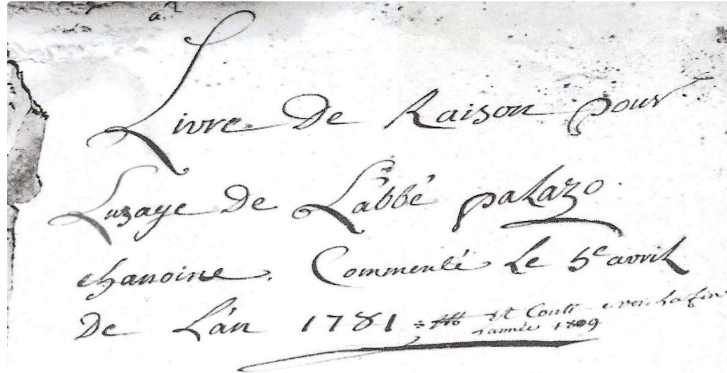 Livre De Raison pour
Luzaye De L'abbé paLazo.
chanoine. Commenté Le 5e avril
De L'an 1781
La fin
L'année 1809